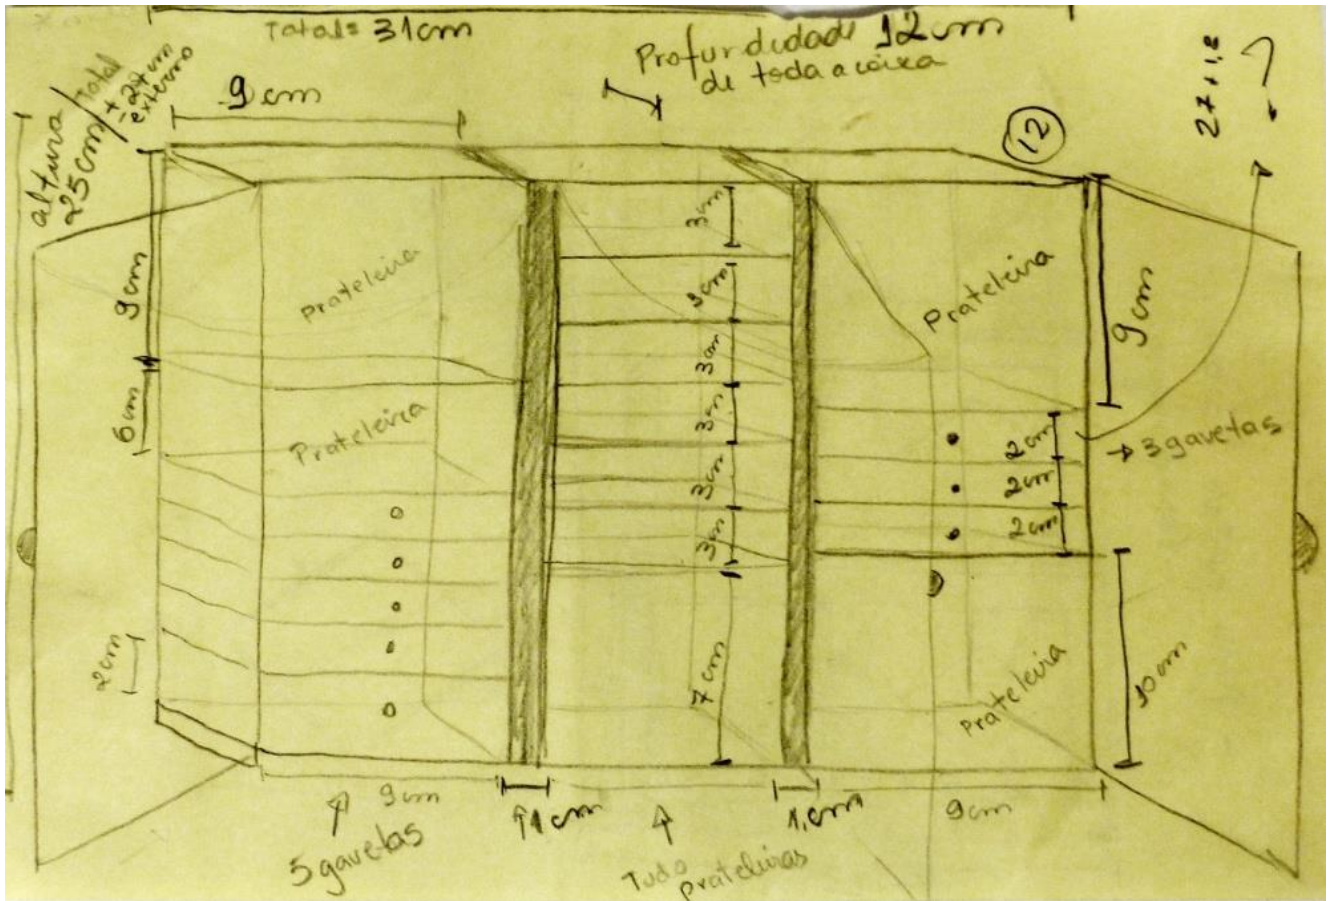 Total = 31cm
Profundidade 12cm
de toda a caixa
altura
25cm
Total
± 27cm
externo
9cm
12
27 x 1,8
9cm
6cm
2cm
Prateleira
Prateleira
3cm
3cm
3cm
3cm
3cm
3cm
7cm
Prateleira
9cm
2cm
2cm
2cm
→ 3 gavetas
10cm
Prateleira
9cm
1cm
1cm
9cm
5 gavetas
Tudo
prateleiras